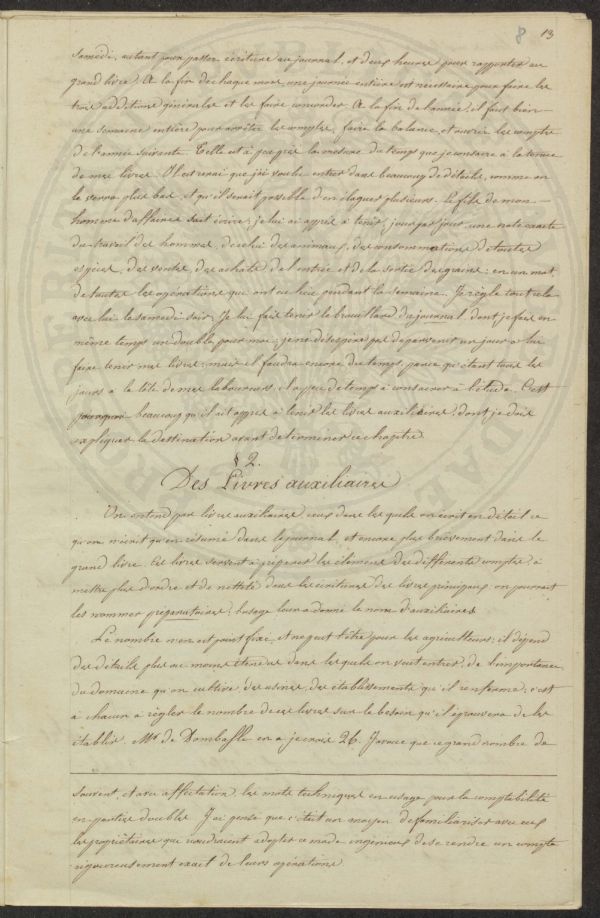 8 13
samedi, autant pour passer écriture au journal, et deux heures pour rapporter au
grand livre. A la fin de chaque mois, une journée entière est nécessaire pour faire les
trois additions générales et les faire concorder. A la fin de l'année, il faut bien
une semaine entière pour arrêter les comptes, faire la balance, et ouvrir les comptes
de l'année suivante. Telle est à peu près la mesure du temps que je consacre à la tenue
de mes livres. Il est vrai que j'ai voulu entrer dans beaucoup de détails, comme on
le verra plus bas, et qu'il serait possible d'en élaguer plusieurs. Le fils de mon
homme d'affaires sait écrire; je lui ai appris à tenir, jour par jour, une note exacte
du travail des hommes, de celui des animaux, des consommations de toutes
espèces, des ventes, des achats, de l'entrée et de la sortie des grains: en un mot,
de toutes les opérations qui ont eu lieu pendant la semaine. Je règle tout cela
avec lui le samedi soir. Je lui fais tenir le brouillard du journal dont je fais en
même temps un double pour moi; je ne désespère pas de parvenir un jour à lui
faire tenir mes livres; mais il faudra encore du temps, parce qu'étant tous les
jours à la tête de mes laboureurs, il a peu de temps à consacrer à l'étude. C'est
pourquoi beaucoup qu'il ait appris à tenir les livres auxiliaires, dont je dois
expliquer la destination avant de terminer ce chapitre.
§ 2.
Des Livres auxiliaires
On entend par livres auxiliaires ceux dans lesquels on écrit en détail ce
qu'on n'écrit qu'en résumé dans le journal, et encore plus brièvement dans le
grand livre. Ces livres servent à préparer les élémens des différents comptes, à
mettre plus d'ordre et de netteté dans les écritures des livres principaux. on pourrait
les nommer préparatoires; l'usage leur a donné le nom d'auxiliaires.
Le nombre n'en est point fixe, et ne peut l'être pour les agriculteurs; il dépend
des détails plus ou moins étendus dans lesquels on veut entrer, de l'importance
du domaine qu'on cultive, des usines, des établissements qu'il renferme; c'est
à chacun à régler le nombre de ces livres sur le besoin qu'il éprouvera de les
établir. Mr. de Dombasle en a je crois 26. J'avoue que ce grand nombre de
souvent, et avec affectation, les mots techniques en usage pour la comptabilité
en partie double. J'ai pensé que c'était un moyen de familiariser avec eux
les propriétaires qui voudraient adopter ce mode ingénieux de se rendre un compte
rigoureusement exact de leurs opérations.